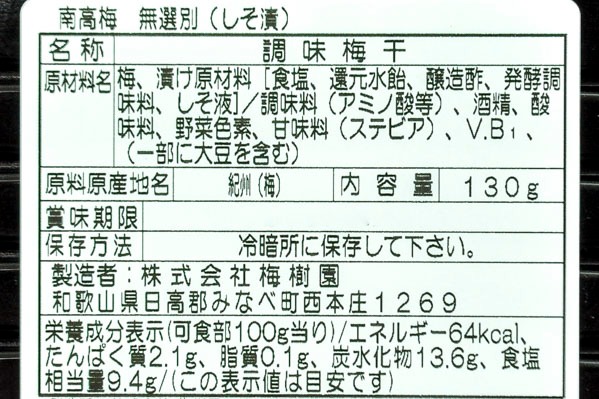 南高梅 無選別（しそ漬）
名称 調味梅干
原材料名 梅、漬け原材料［食塩、還元水飴、醸造酢、発酵調
味料、しそ液］／調味料（アミノ酸等）、酒精、酸
味料、野菜色素、甘味料（ステビア）、V.B1、
（一部に大豆を含む）
原料原産地名 紀州（梅） 内容量 130g
賞味期限
保存方法 冷暗所に保存して下さい。
製造者：株式会社梅樹園
和歌山県日高郡みなべ町西本庄1269
栄養成分表示(可食部100g当り)/エネルギー64kcal、
たんぱく質2.1g、脂質0.1g、炭水化物13.6g、食塩
相当量9.4g/(この表示値は目安です)